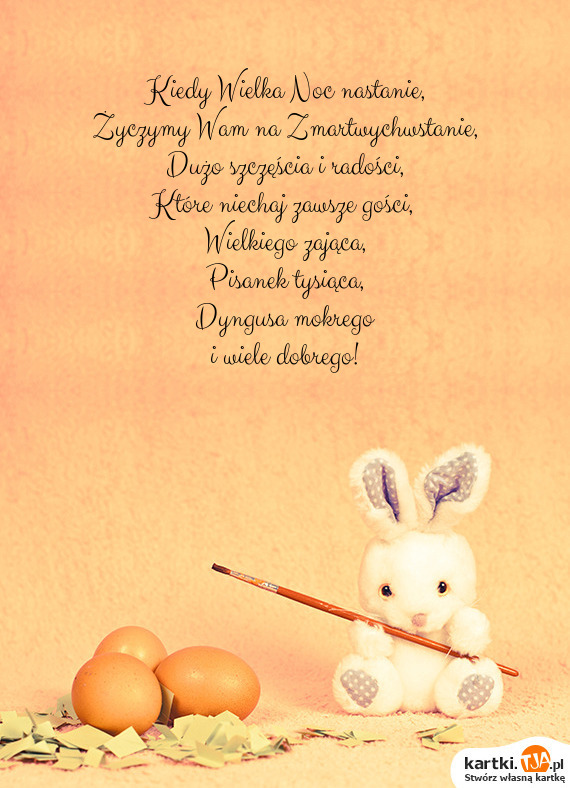 Kiedy Wielka Noc nastanie,
Życzymy Wam na Zmartwychwstanie,
Dużo szczęścia i radości,
Które niechaj zawsze gości,
Wielkiego zająca,
Pisanek tysiąca,
Dyngusa mokrego
i wiele dobrego!
kartki.TJA.pl
Stwórz własną kartkę